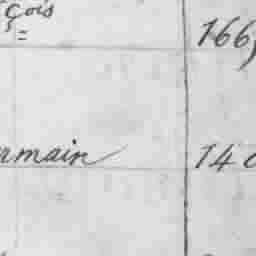 çois 166
rmain 140